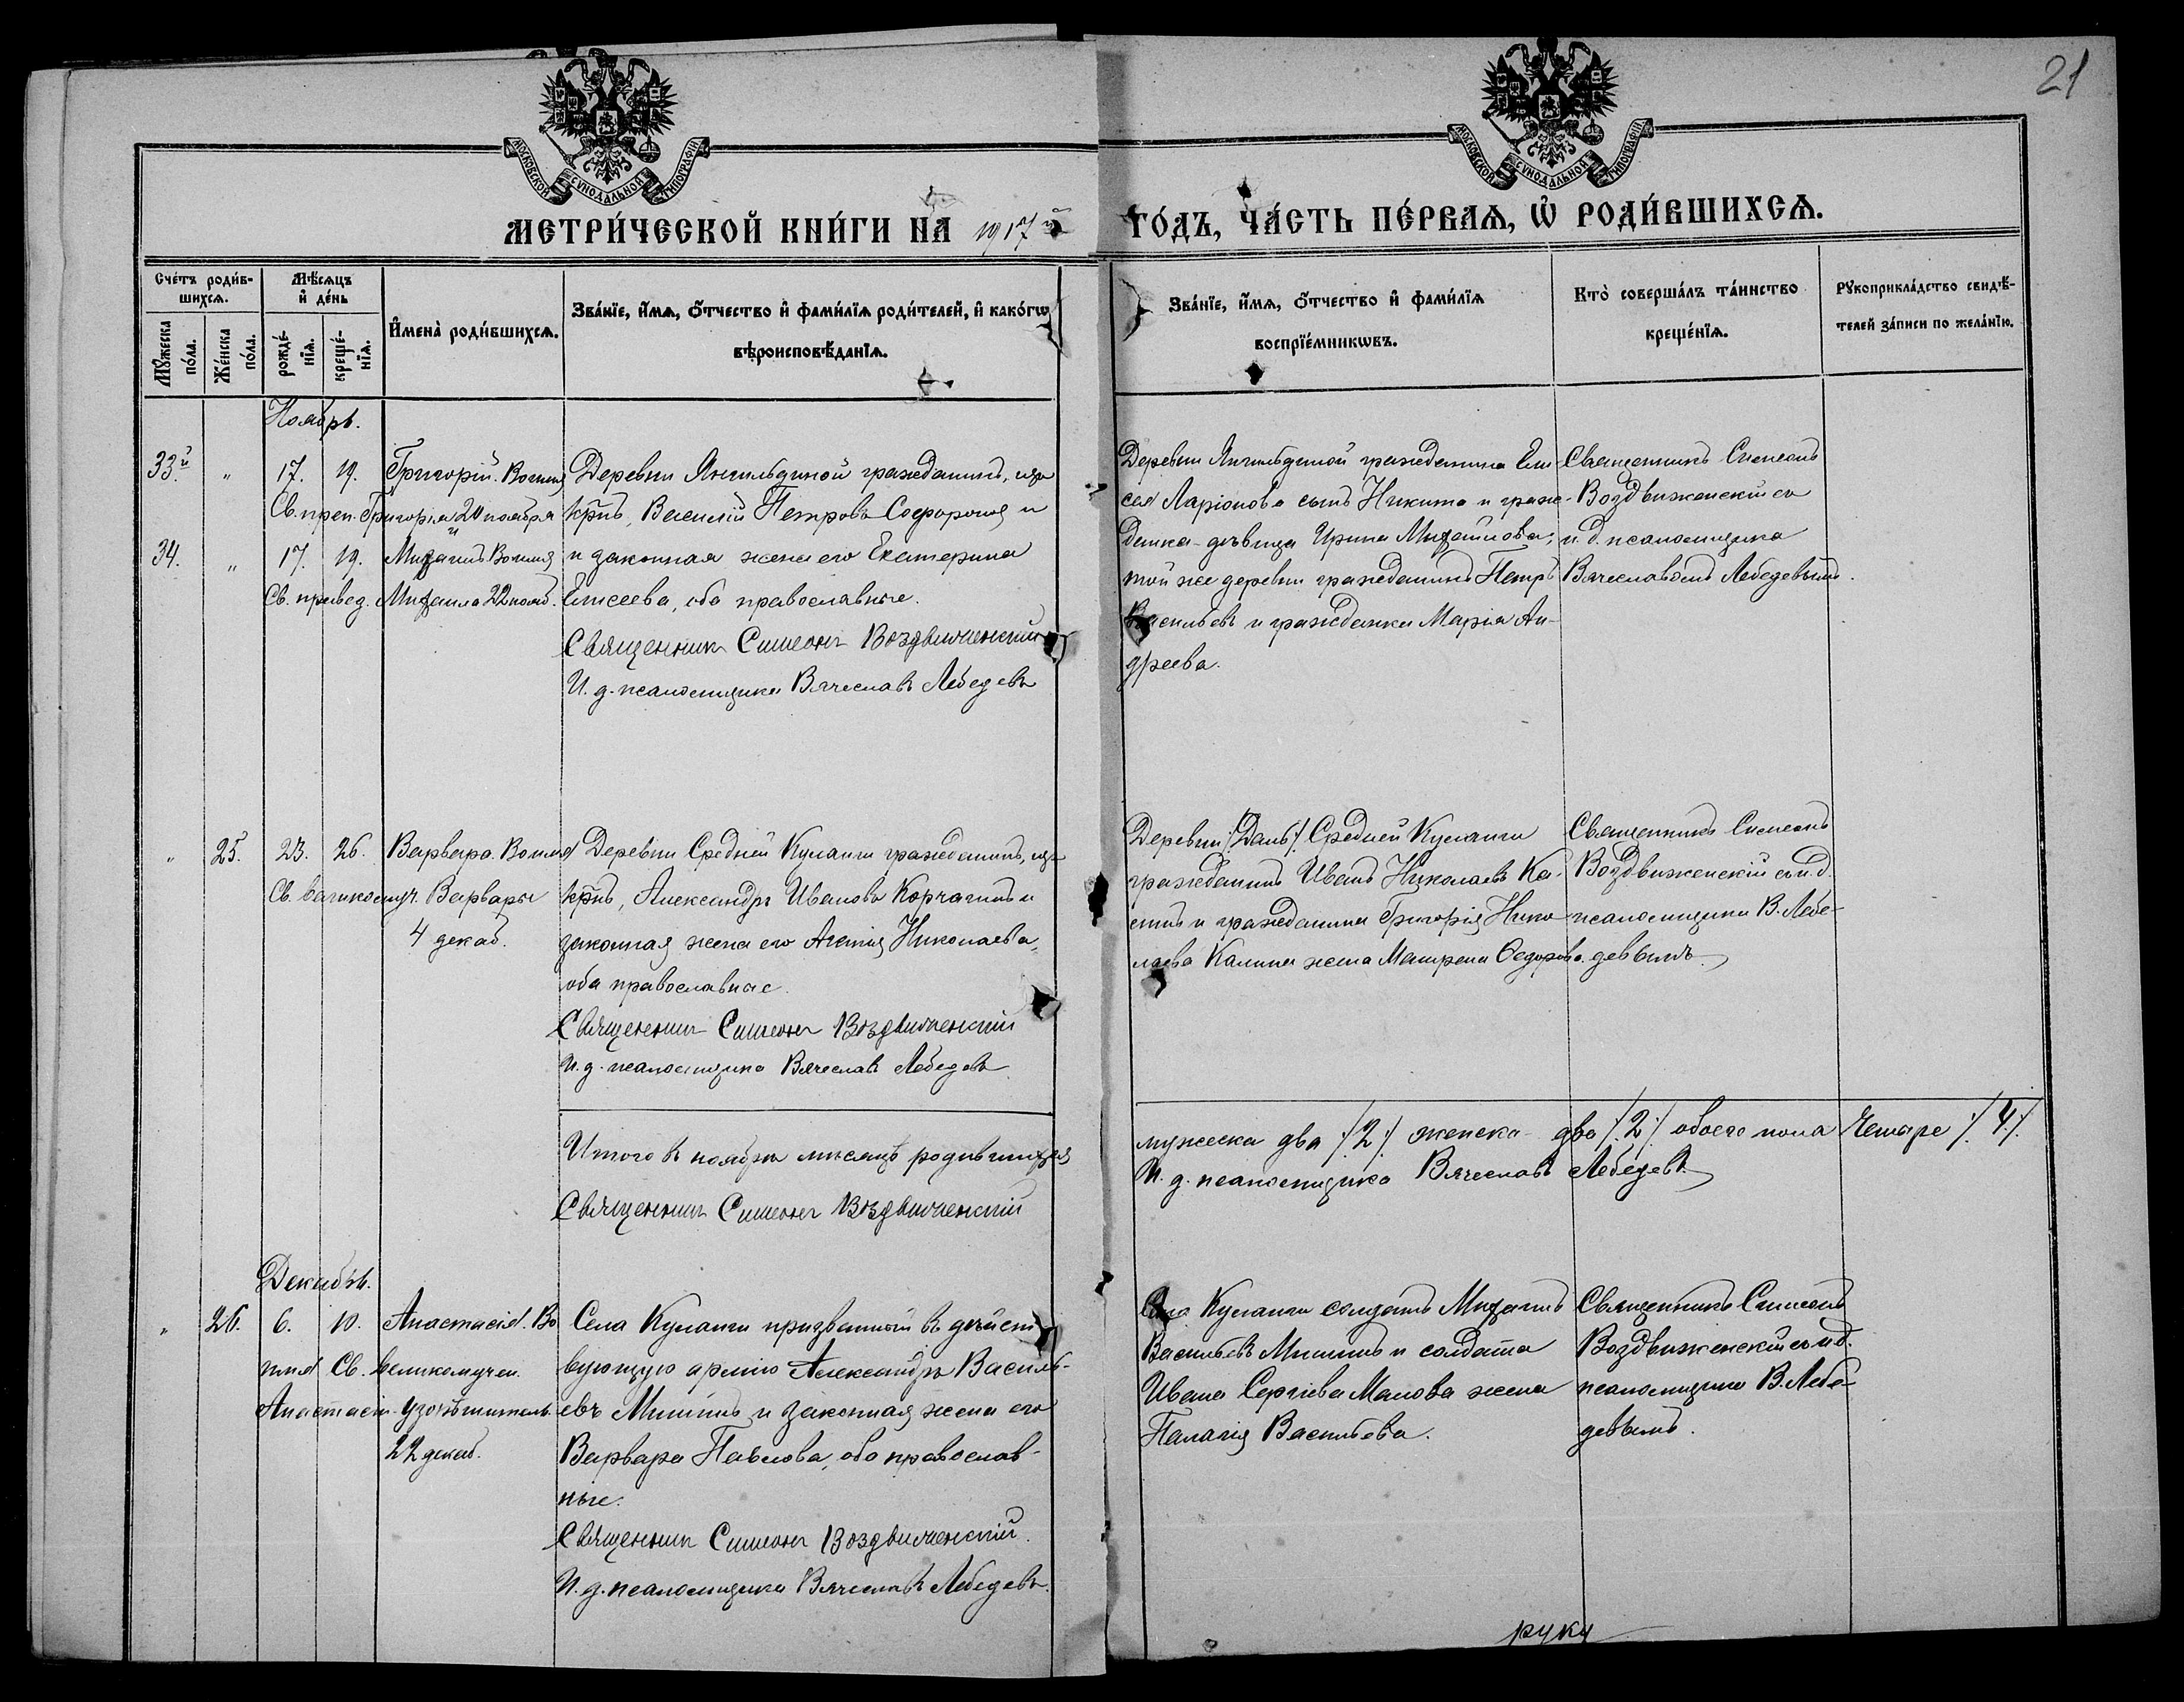 21
МОСКОВСКОЙ СѴНОДАЛЬНОЙ ТИПОГРАФІИ
МОСКОВСКОЙ СѴНОДАЛЬНОЙ ТИПОГРАФІИ
МЕТРИ́ЧЕСКОЙ КНИ́ГИ НА 1917й ГО́ДЪ, ЧА́СТЬ ПЕ́РВАѦ, Ѡ҆ РОДИ́ВШИХСѦ.
Сче́тъ роди́в-
шихсѧ.
Мꙋ́жеска по́ла.
Же́нска по́ла.
Мѣ́сѧцъ и҆ де́нь
рожде́-нїѧ.
креще́-нїѧ.
И҆мена̀ роди́вшихсѧ.
Зва́нїе, и҆́мѧ, ѻ҆́тчество и҆ фами́лїѧ роди́телей, и҆ како́гѡ
вѣроисповѣ́данїѧ.
Зва́нїе, и҆́мѧ, ѻ҆́тчество и҆ фами́лїѧ
воспрїе́мникѡвъ.
Кто̀ соверша́лъ та́инство
креще́нїѧ.
Рꙋкоприкла́дство свидѣ́-
телей за́писи по жела́нїю.
Ноябрь.
33й " 17. 19. Григорій. Во имя
Св. преп. Григорія 20 ноября
34. " 17. 19. Михаилъ. Во имя
Св. правед. Михаила 22 нояб.
Деревни Янгильдиной гражданинъ, изъ
крнъ, Василій Петровъ Софроновъ и
и законная жена его Екатерина
Елисеева, оба православные.
Священникъ Симеонъ Воздвиженскій
И. д. псаломщика Вячеславъ Лебедевъ
Деревни Янгильдиной гражданина Ели-
сея Ларіонова сынъ Никита и граж-
данка-дѣвица Ирина Михайлова;
той же деревни гражданинъ Петръ
Васильевъ и гражданка Марія Ан-
дреева.
Священникъ Симеонъ
Воздвиженскій съ
и.д. псаломщика
Вячеславомъ Лебедевымъ.
" 25. 23. 26. Варвара. Во имя
Св. великомуч. Варвары
4 декаб.
Деревни Средней Куланги гражданинъ, изъ
крнъ, Александръ Ивановъ Корчагинъ и
законная жена его Николаева,
оба православные.
Священникъ Симеонъ Воздвиженскій
И. д. псаломщика Вячеславъ Лебедевъ
Деревни Средней Куланги
гражданинъ Иванъ Николаевъ Ка-
и гражданина Григорія Нико-
лаева Калина жена Матрена Ѳедорова.
Священникъ Симеонъ
Воздвиженскій съ и.д.
псаломщика В. Лебе-
девымъ.
Итого въ ноябрѣ мѣсяцѣ родившихся
мужеска два /2/ женска два /2/ обоего пола четыре /4/.
Священникъ Симеонъ Воздвиженскій
И. д. псаломщика Вячеславъ Лебедевъ
Декабрь.
" 26. 6. 10. Анастасія. Во
имя Св. великомучен.
Анастасіи-Узорѣшительн.
22 декаб.
Села Куланги призванный въ дѣйст-
вующую армію Александръ Василь-
евъ Мининъ и законная жена его
Варвара Павлова, оба православ-
ные.
Священникъ Симеонъ Воздвиженскій.
И. д. псаломщика Вячеславъ Лебедевъ.
Села Куланги солдатъ Михаилъ
Васильевъ Мининъ и солдата
Ивана Сергіева Малова жена
Палагія Васильева.
Священникъ Симеонъ
Воздвиженскій съ и.д.
псаломщика В. Лебе-
девымъ.
руку